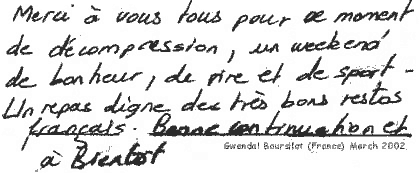 Merci à vous tous pour ce moment
de décompression, un weekend
de bonheur, de rire et de sport -
Un repas digne des très bons restos
français. Bonne continuation et
à Bientôt
Gwendal Bourdlot (France) March 2002